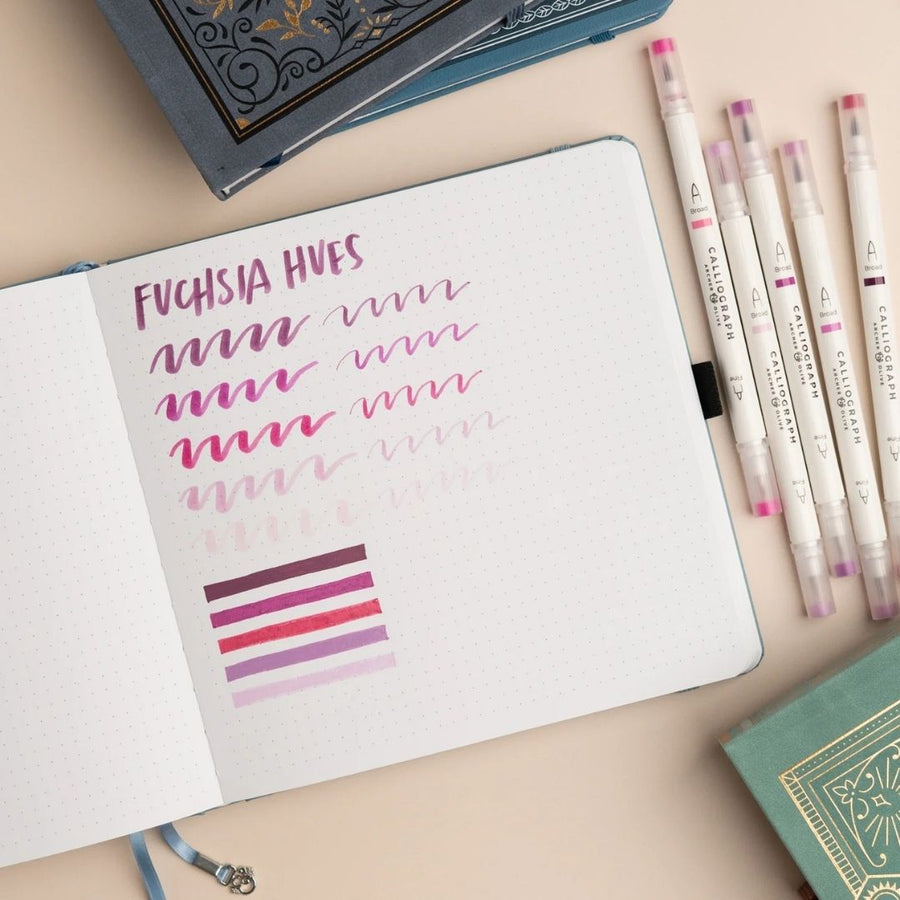 FUCHSIA HUES
A
Broad
CALLIOGRAPH
ARCHER & OLIVE
Fine
A
Broad
CALLIOGRAPH
ARCHER & OLIVE
Fine
A
Broad
CALLIOGRAPH
ARCHER & OLIVE
Fine
A
Broad
CALLIOGRAPH
ARCHER & OLIVE
Fine
A
Broad
CALLIOGRAPH
ARCHER & OLIVE
Fine